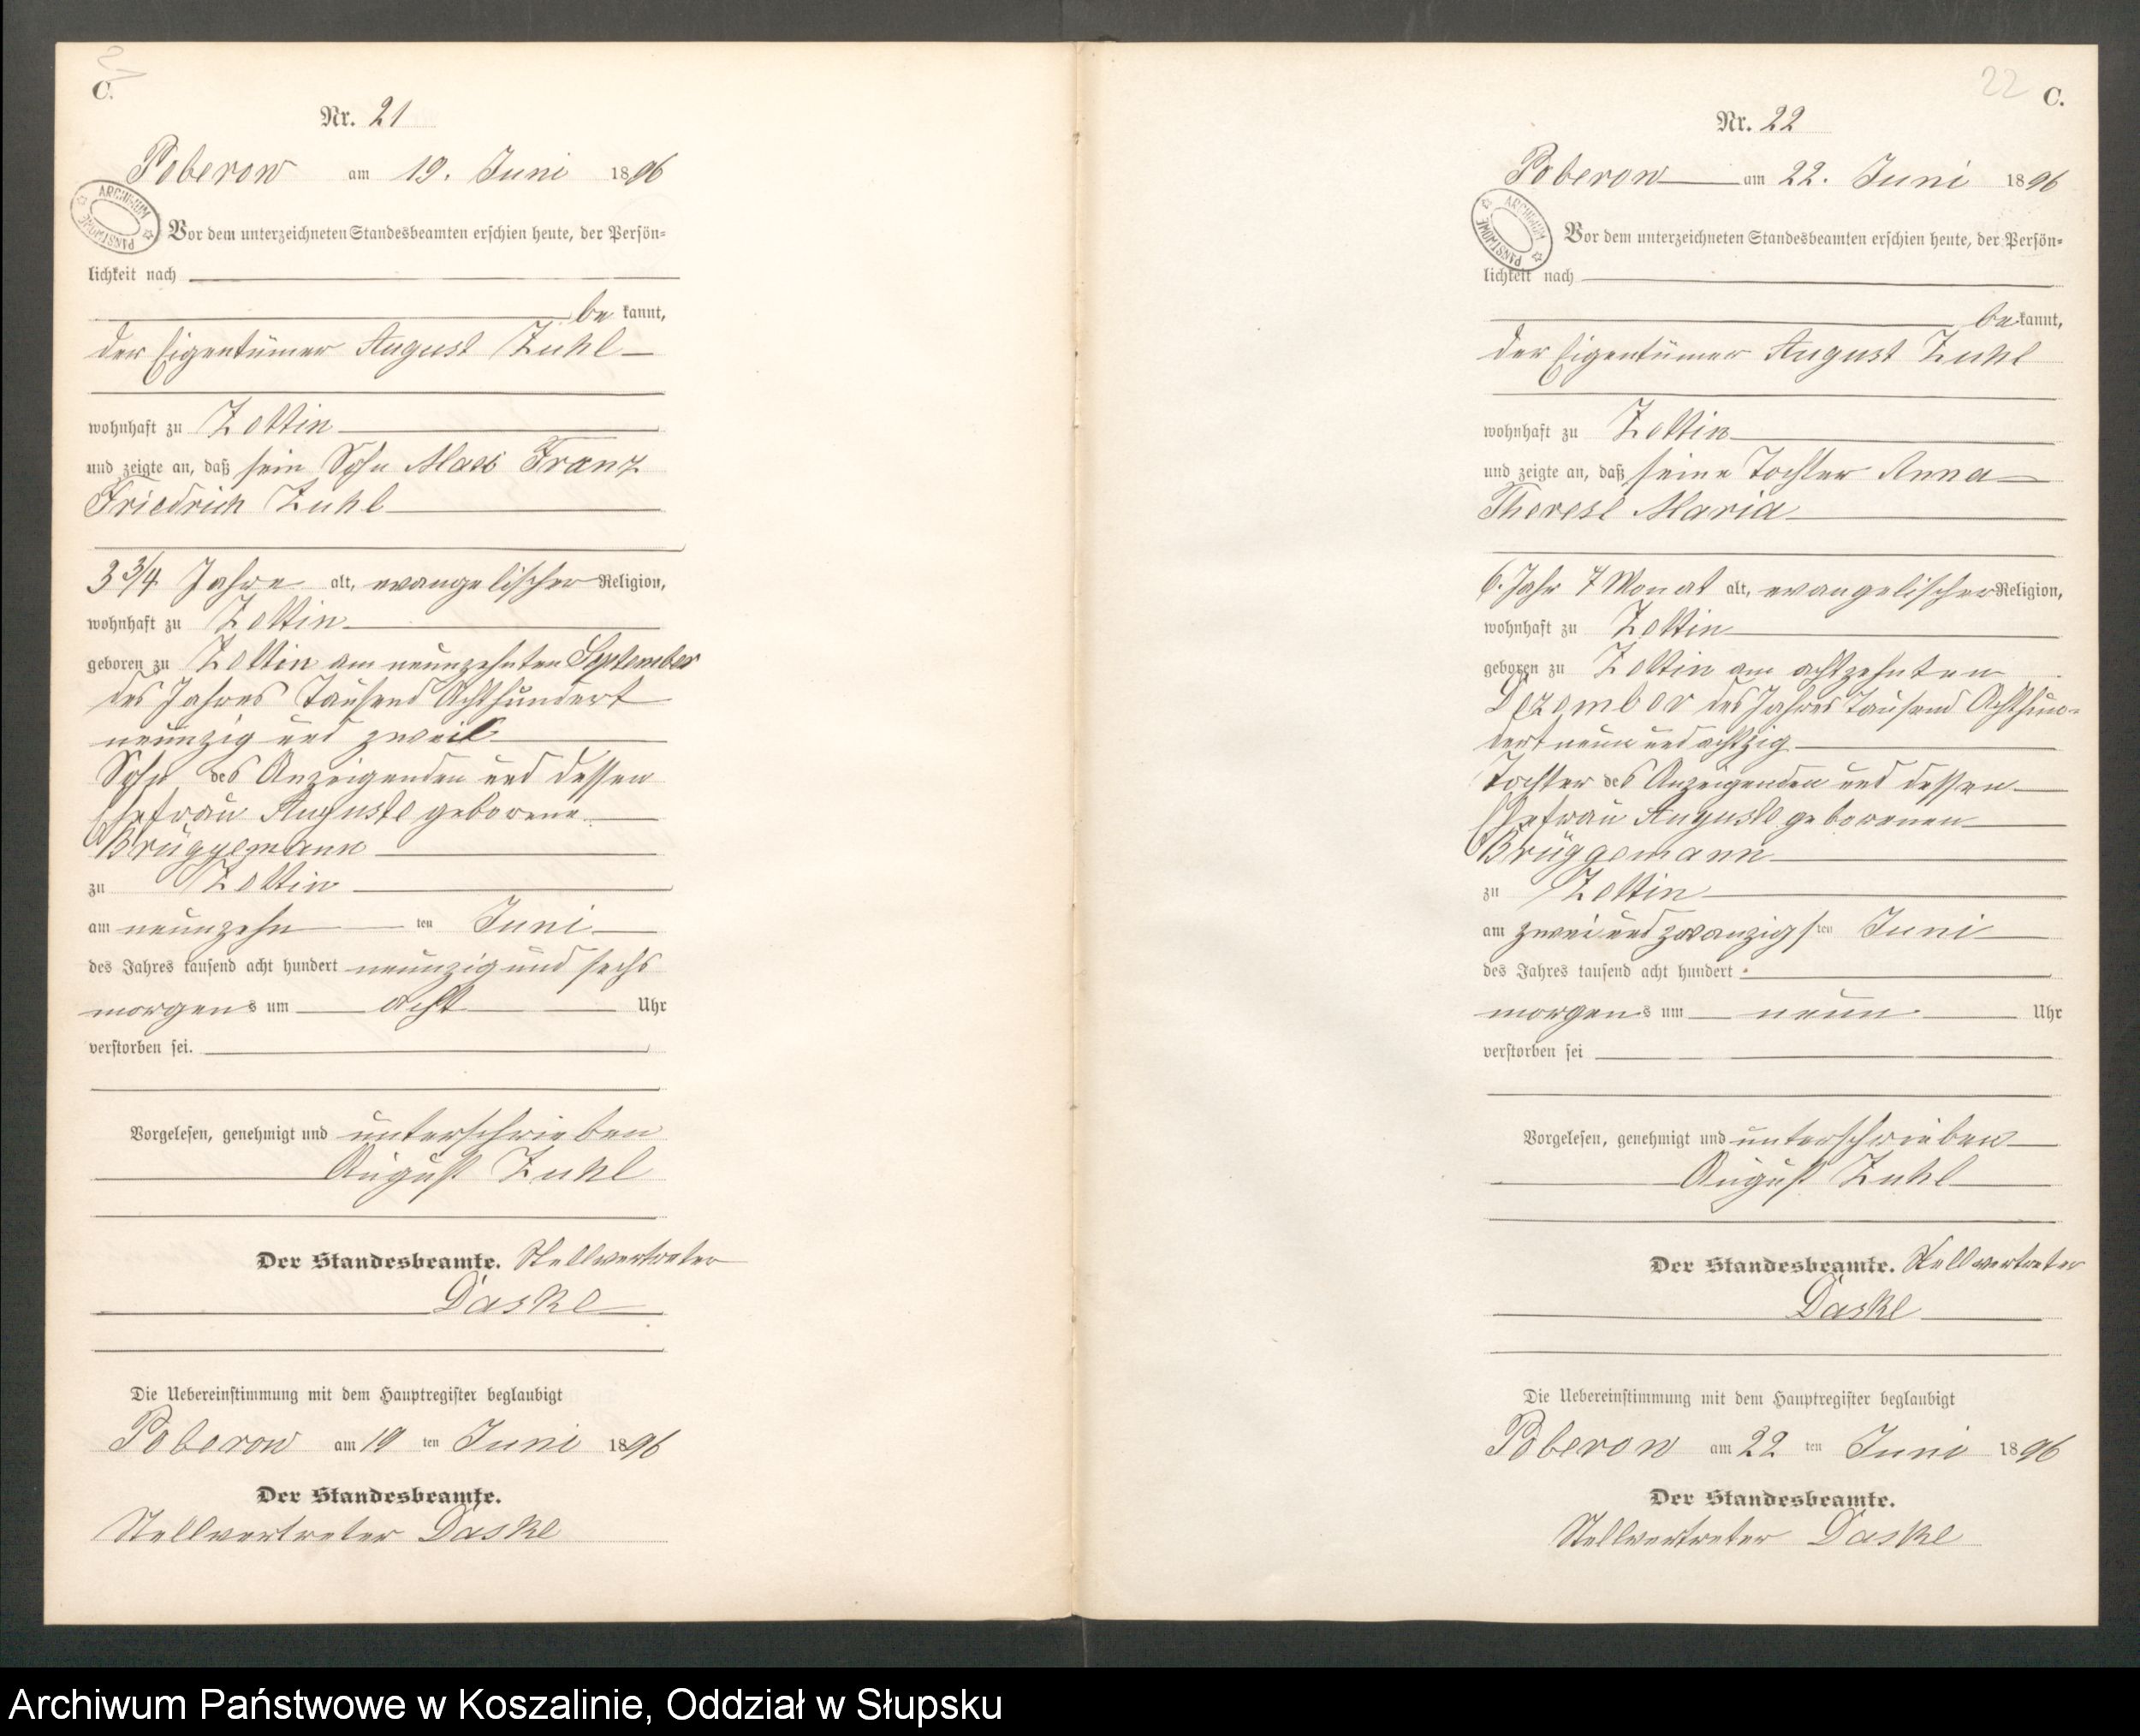 C.
Nr. 21
Poberow am 19. Juni 1896
ARCHIWUM PAŃSTWOWE
Vor dem unterzeichneten Standesbeamten erschien heute, der Persön=
lichkeit nach
be kannt,
der Eigentümer August Zuhl
wohnhaft zu Zettin
und zeigte an, daß sein Sohn Max Franz
Friedrich Zuhl
3 3/4 Jahre alt, evangelischer Religion,
wohnhaft zu Zettin
geboren zu Zettin am neunzehnten September
des Jahres Tausend Achthundert
neunzig und zwei
Sohn des Anzeigenden und dessen
Ehefrau Auguste geborene
Brüggemann
zu Zettin
am neunzehn ten Juni
des Jahres tausend acht hundert neunzig und sechs
morgens um acht Uhr
verstorben sei.
Vorgelesen, genehmigt und unterschrieben
August Zuhl
Der Standesbeamte. Stellvertreter
Daske
Die Uebereinstimmung mit dem Hauptregister beglaubigt
Poberow am 19 ten Juni 1896
Der Standesbeamte.
Stellvertreter Daske
22 C.
Nr. 22
Poberow am 22. Juni 1896
ARCHIWUM PAŃSTWOWE
Vor dem unterzeichneten Standesbeamten erschien heute, der Persön=
lichkeit nach
be kannt,
der Eigentümer August Zuhl
wohnhaft zu Zettin
und zeigte an, daß seine Tochter Anna
Therese Maria
6. Jahr 7 Monat alt, evangelischer Religion,
wohnhaft zu Zettin
geboren zu Zettin am achtzehnten
Dezember des Jahres Tausend Achthun=
dert neun und achtzig
Tochter des Anzeigenden und dessen
Ehefrau Auguste geborenen
Brüggemann
zu Zettin
am zwei und zwanzigsten Juni
des Jahres tausend acht hundert
morgens um neun Uhr
verstorben sei
Vorgelesen, genehmigt und unterschrieben
August Zuhl
Der Standesbeamte. Stellvertreter
Daske
Die Uebereinstimmung mit dem Hauptregister beglaubigt
Poberow am 22 ten Juni 1896
Der Standesbeamte.
Stellvertreter Daske
Archiwum Państwowe w Koszalinie, Oddział w Słupsku